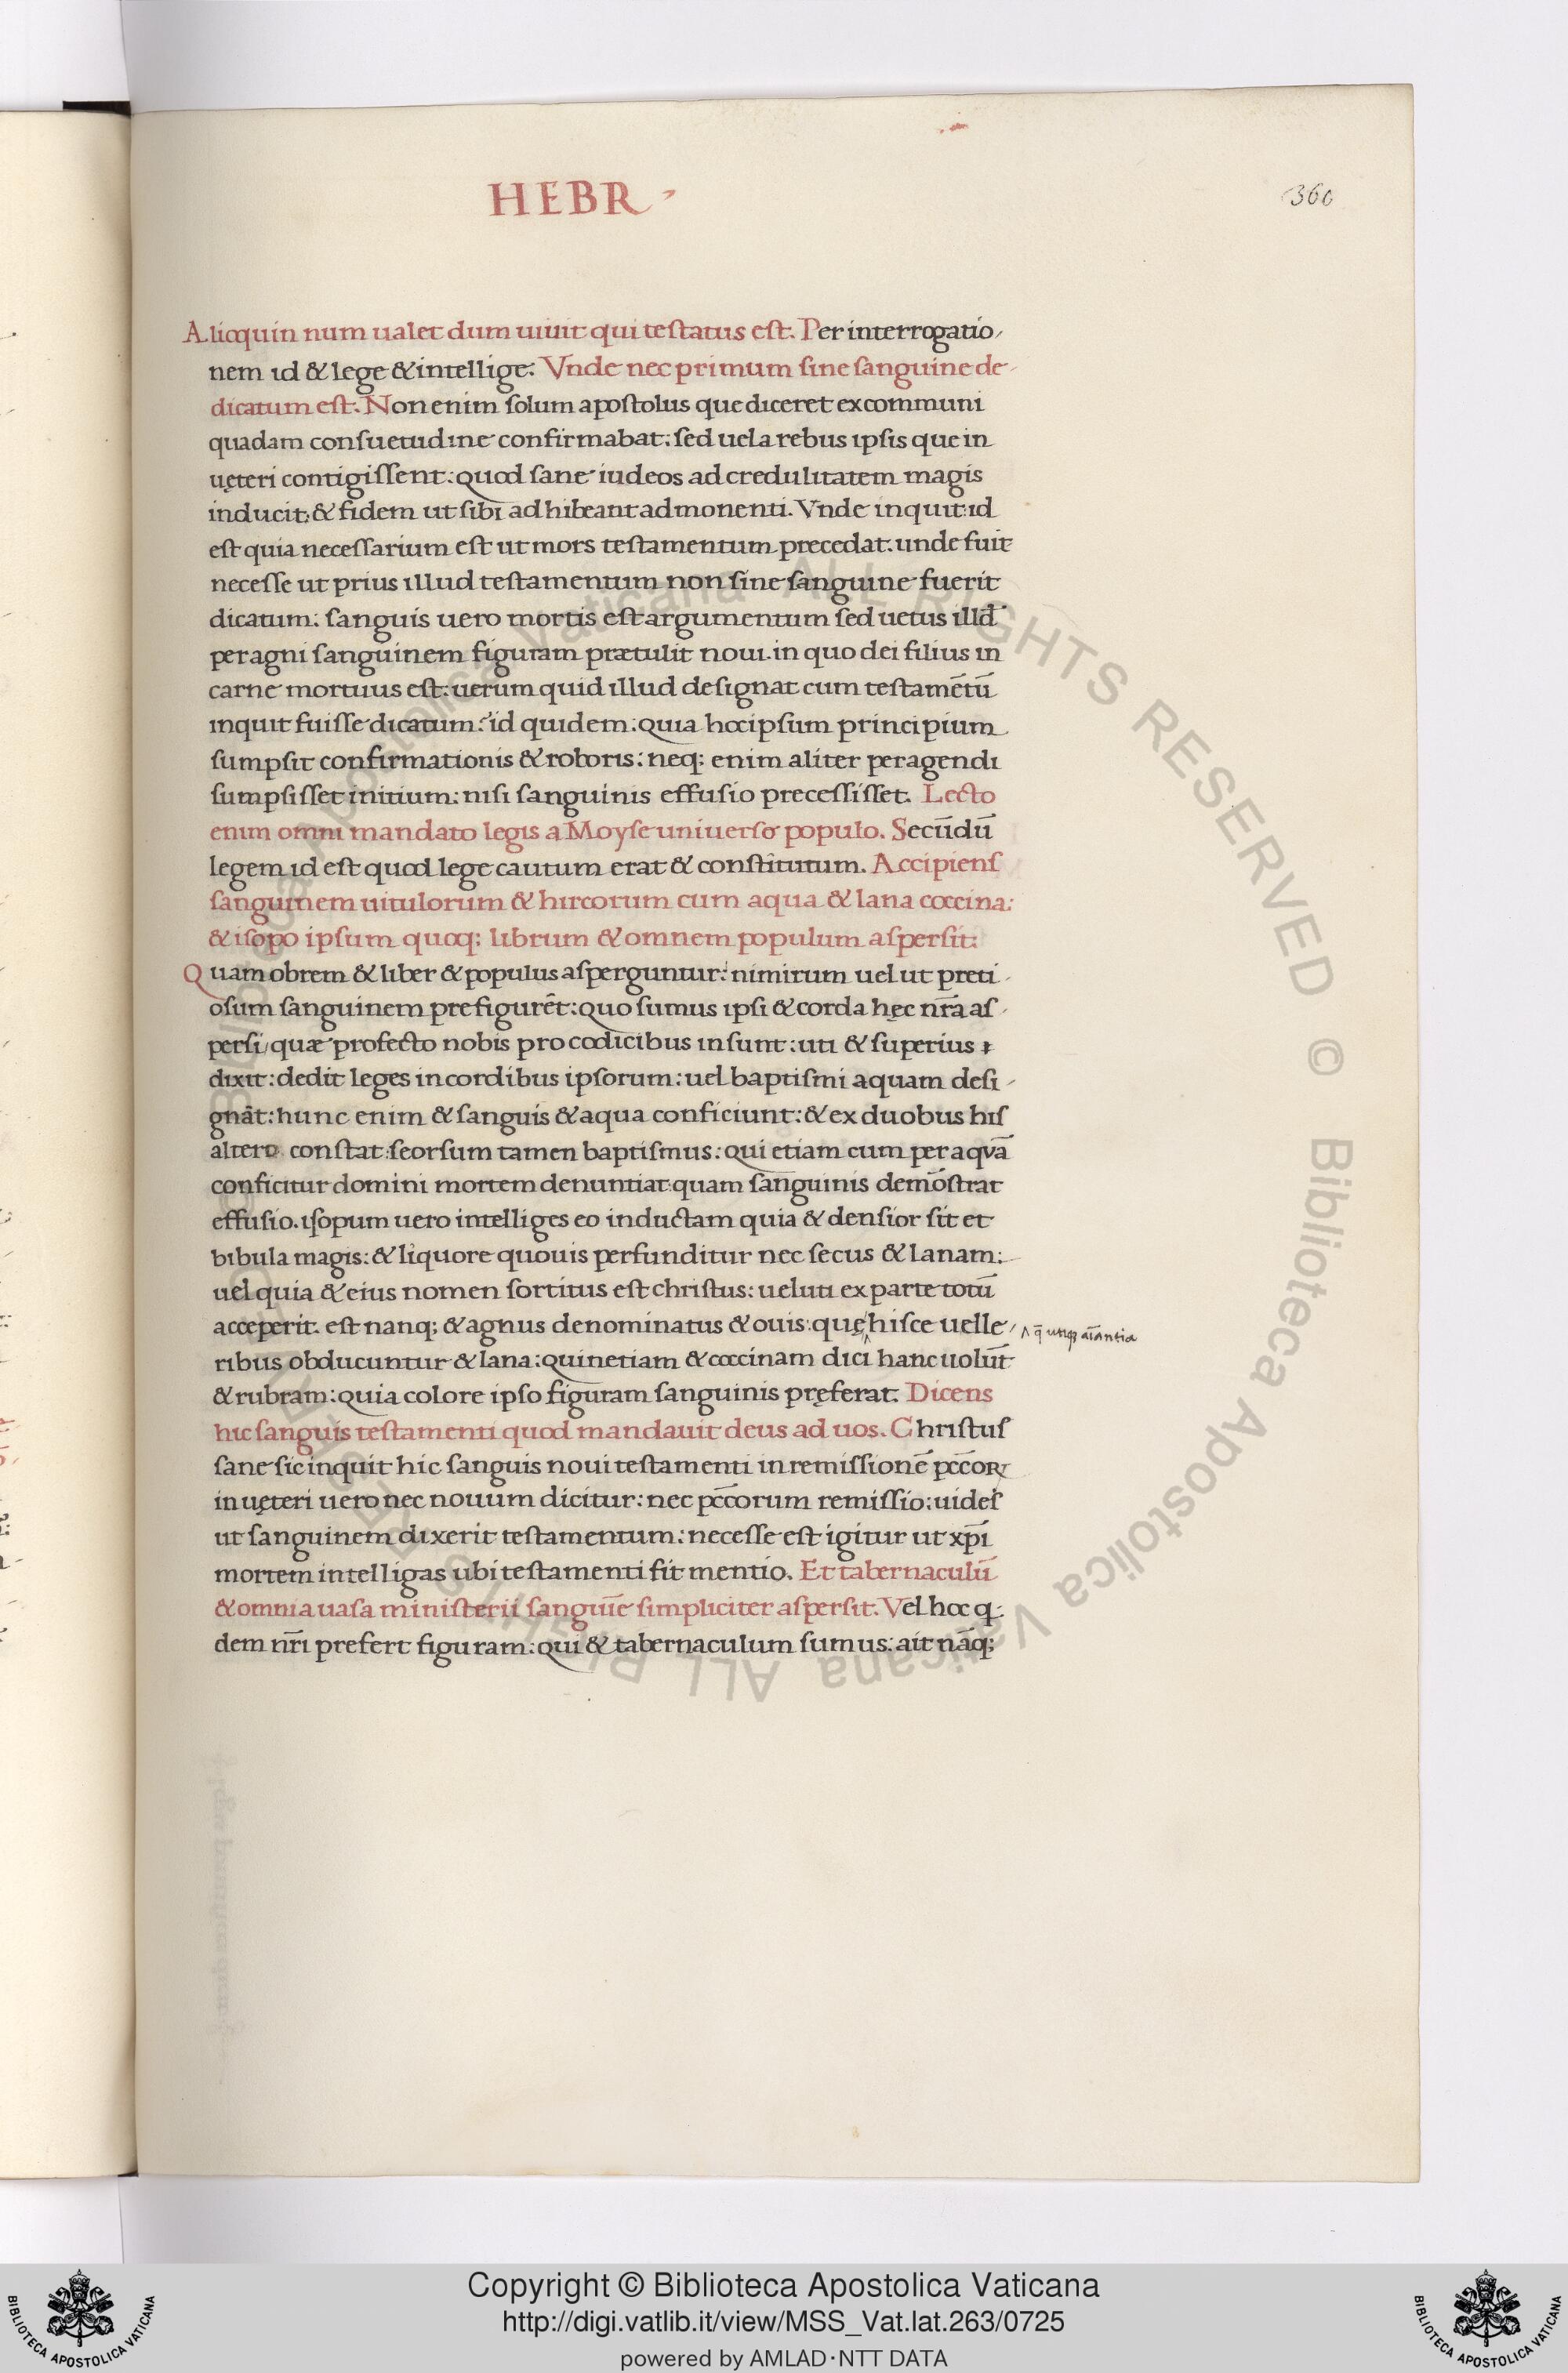 HEBR
360
Alioquin num ualet dum uiuit qui testatus est. Per interrogatio
nem id & lege & intellige: Vnde nec primum sine sanguine de
dicatum est. Non enim solum apostolus que diceret ex communi
quadam consuetudine confirmabat: sed uel a rebus ipsis que in
uęteri contigissent: quod sane iudeos ad credulitatem magis
inducit: & fidem ut sibi adhibeant admonenti. Vnde inquit: id
est quia necessarium est ut mors testamentum precedat. unde fuit
necesse ut prius illud testamentum non sine sanguine fuerit
dicatum: sanguis uero mortis est argumentum sed uetus illd̄
per agni sanguinem figuram prætulit noui. in quo dei filius in
carne mortuus est: uerum quid illud designat cum testamētū
inquit fuisse dicatum? id quidem: quia hoc ipsum principium
sumpsit confirmationis & roboris: neq; enim aliter peragendi
sumpsisset initium: nisi sanguinis effusio precessisset. Lecto
enim omni mandato legis a Moyse uniuerso populo. Secūdū
legem id est quod lege cautum erat & constitutum. Accipiens
sanguinem uitulorum & hircorum cum aqua & lana coccina:
& isopo ipsum quoq; librum & omnem populum aspersit:
Quam obrem & liber & populus asperguntur: nimirum uel ut preti
osum sanguinem prefigurēt: quo sumus ipsi & corda hęc nr̄a as
persi, quæ profecto nobis pro codicibus insunt: uti & superius
dixit: dedit leges in cordibus ipsorum: uel baptismi aquam desi
gnāt: hunc enim & sanguis & aqua conficiunt: & ex duobus his
altero constat seorsum tamen baptismus: qui etiam cum per aqvā
conficitur domini mortem denuntiat quam sanguinis demōstrat
effusio. isopum uero intelliges eo inductam quia & densior sit et
bibula magis: & liquore quouis perfunditur nec secus & lanam:
uel quia & eius nomen sortitus est christus: ueluti ex parte totū
acceperit. est nanq; & agnus denominatus & ouis: quę hisce uelle
ribus obducuntur & lana: quinetiam & coccinam dici hanc uolūt
& rubram: quia colore ipso figuram sanguinis pręferat. Dicens
hic sanguis testamenti quod mandauit deus ad uos. Christus
sane sic inquit hic sanguis noui testamenti in remissionē pc̄coꝝ
in uęteri uero nec nouum dicitur: nec pc̄corum remissio: uides
ut sanguinem dixerit testamentum: necesse est igitur ut xp̄i
mortem intelligas ubi testamenti fit mentio. Et tabernaculū
& omnia uasa ministerii sanguīe simpliciter aspersit. Vel hoc q
dem nr̄i prefert figuram: qui & tabernaculum sumus: ait nāq;
Copyright © Biblioteca Apostolica Vaticana
http://digi.vatlib.it/view/MSS_Vat.lat.263/0725
powered by AMLAD·NTT DATA
BIBLIOTECA APOSTOLICA VATICANA
BIBLIOTECA APOSTOLICA VATICANA
© Biblioteca Apostolica Vaticana ALL RIGHTS RESERVED © Biblioteca Apostolica Vaticana ALL RIGHTS RESERVED